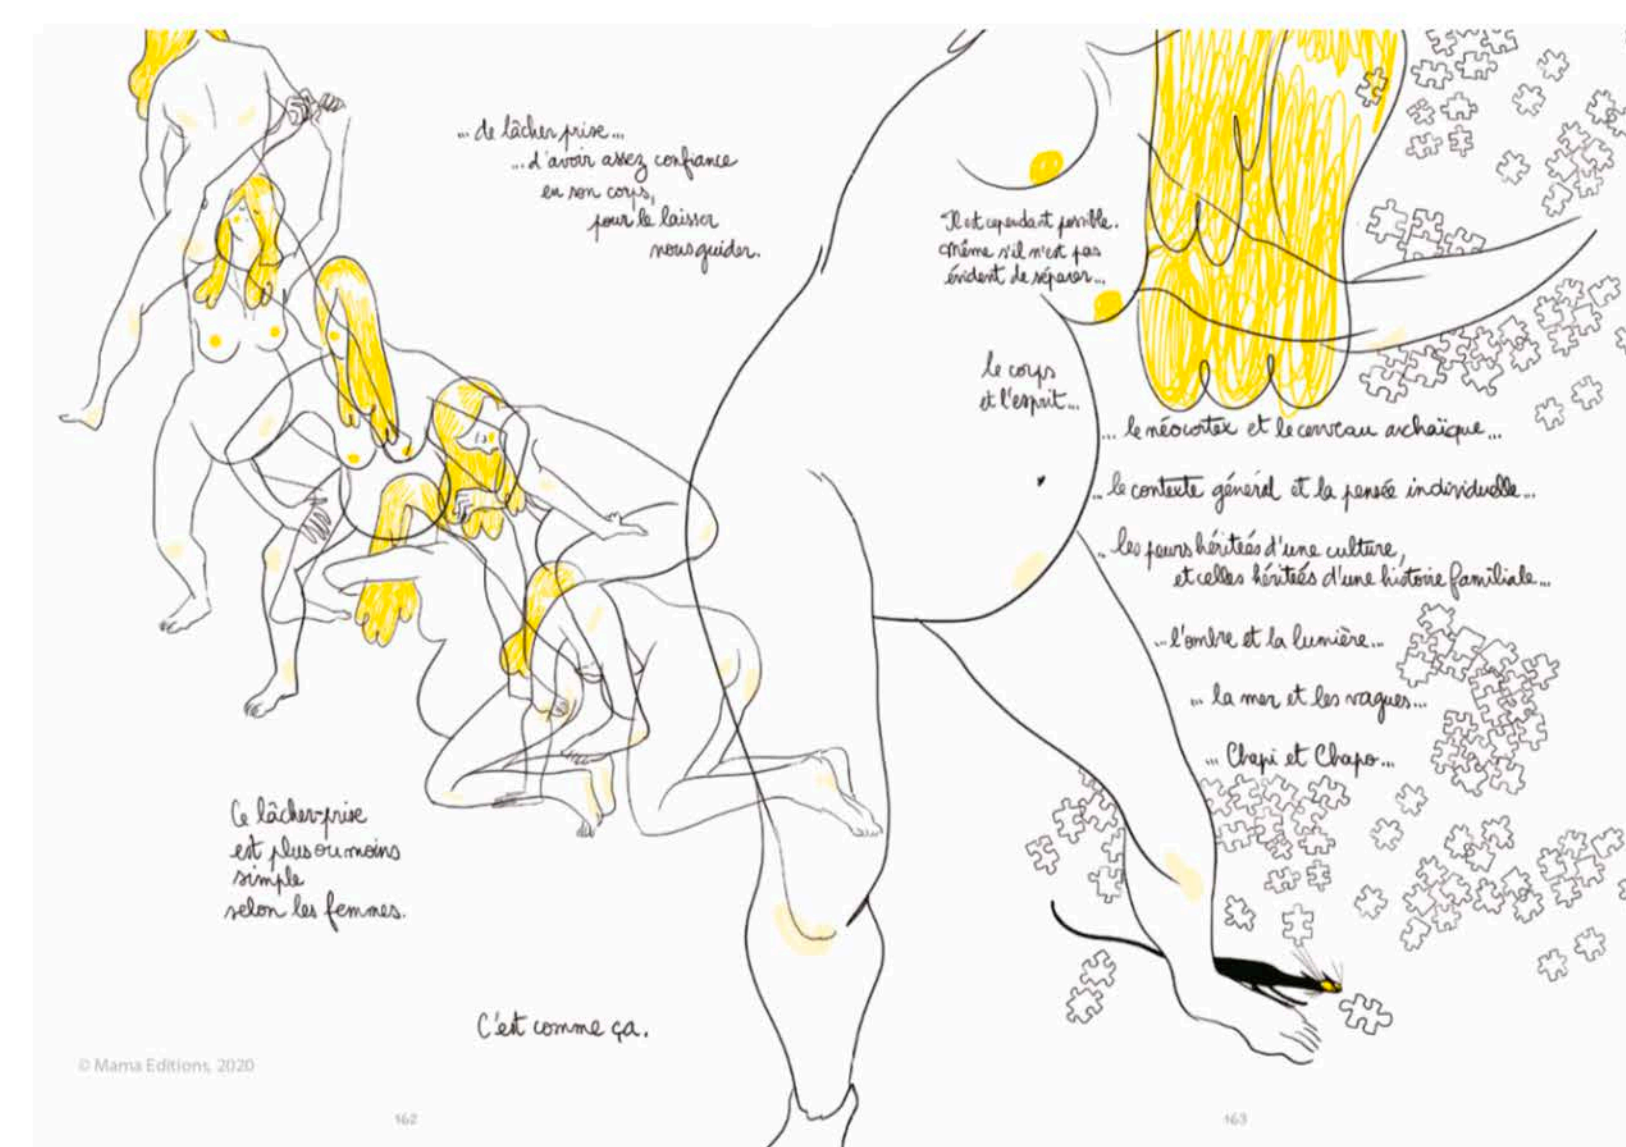 ... de lâcher prise...
... d'avoir assez confiance
en son corps,
pour le laisser
nous guider.
Ce lâcher-prise
est plus ou moins
simple
selon les femmes.
C'est comme ça.
© Mama Editions, 2020
162
Il est cependant possible.
Même s'il n'est pas
évident de séparer...
le corps
et l'esprit...
... le néocortex et le cerveau archaïque...
... le contexte général et la pensée individuelle...
... les peurs héritées d'une culture,
et celles héritées d'une histoire familiale...
... l'ombre et la lumière...
... la mer et les vagues...
... Chapi et Chapo...
163